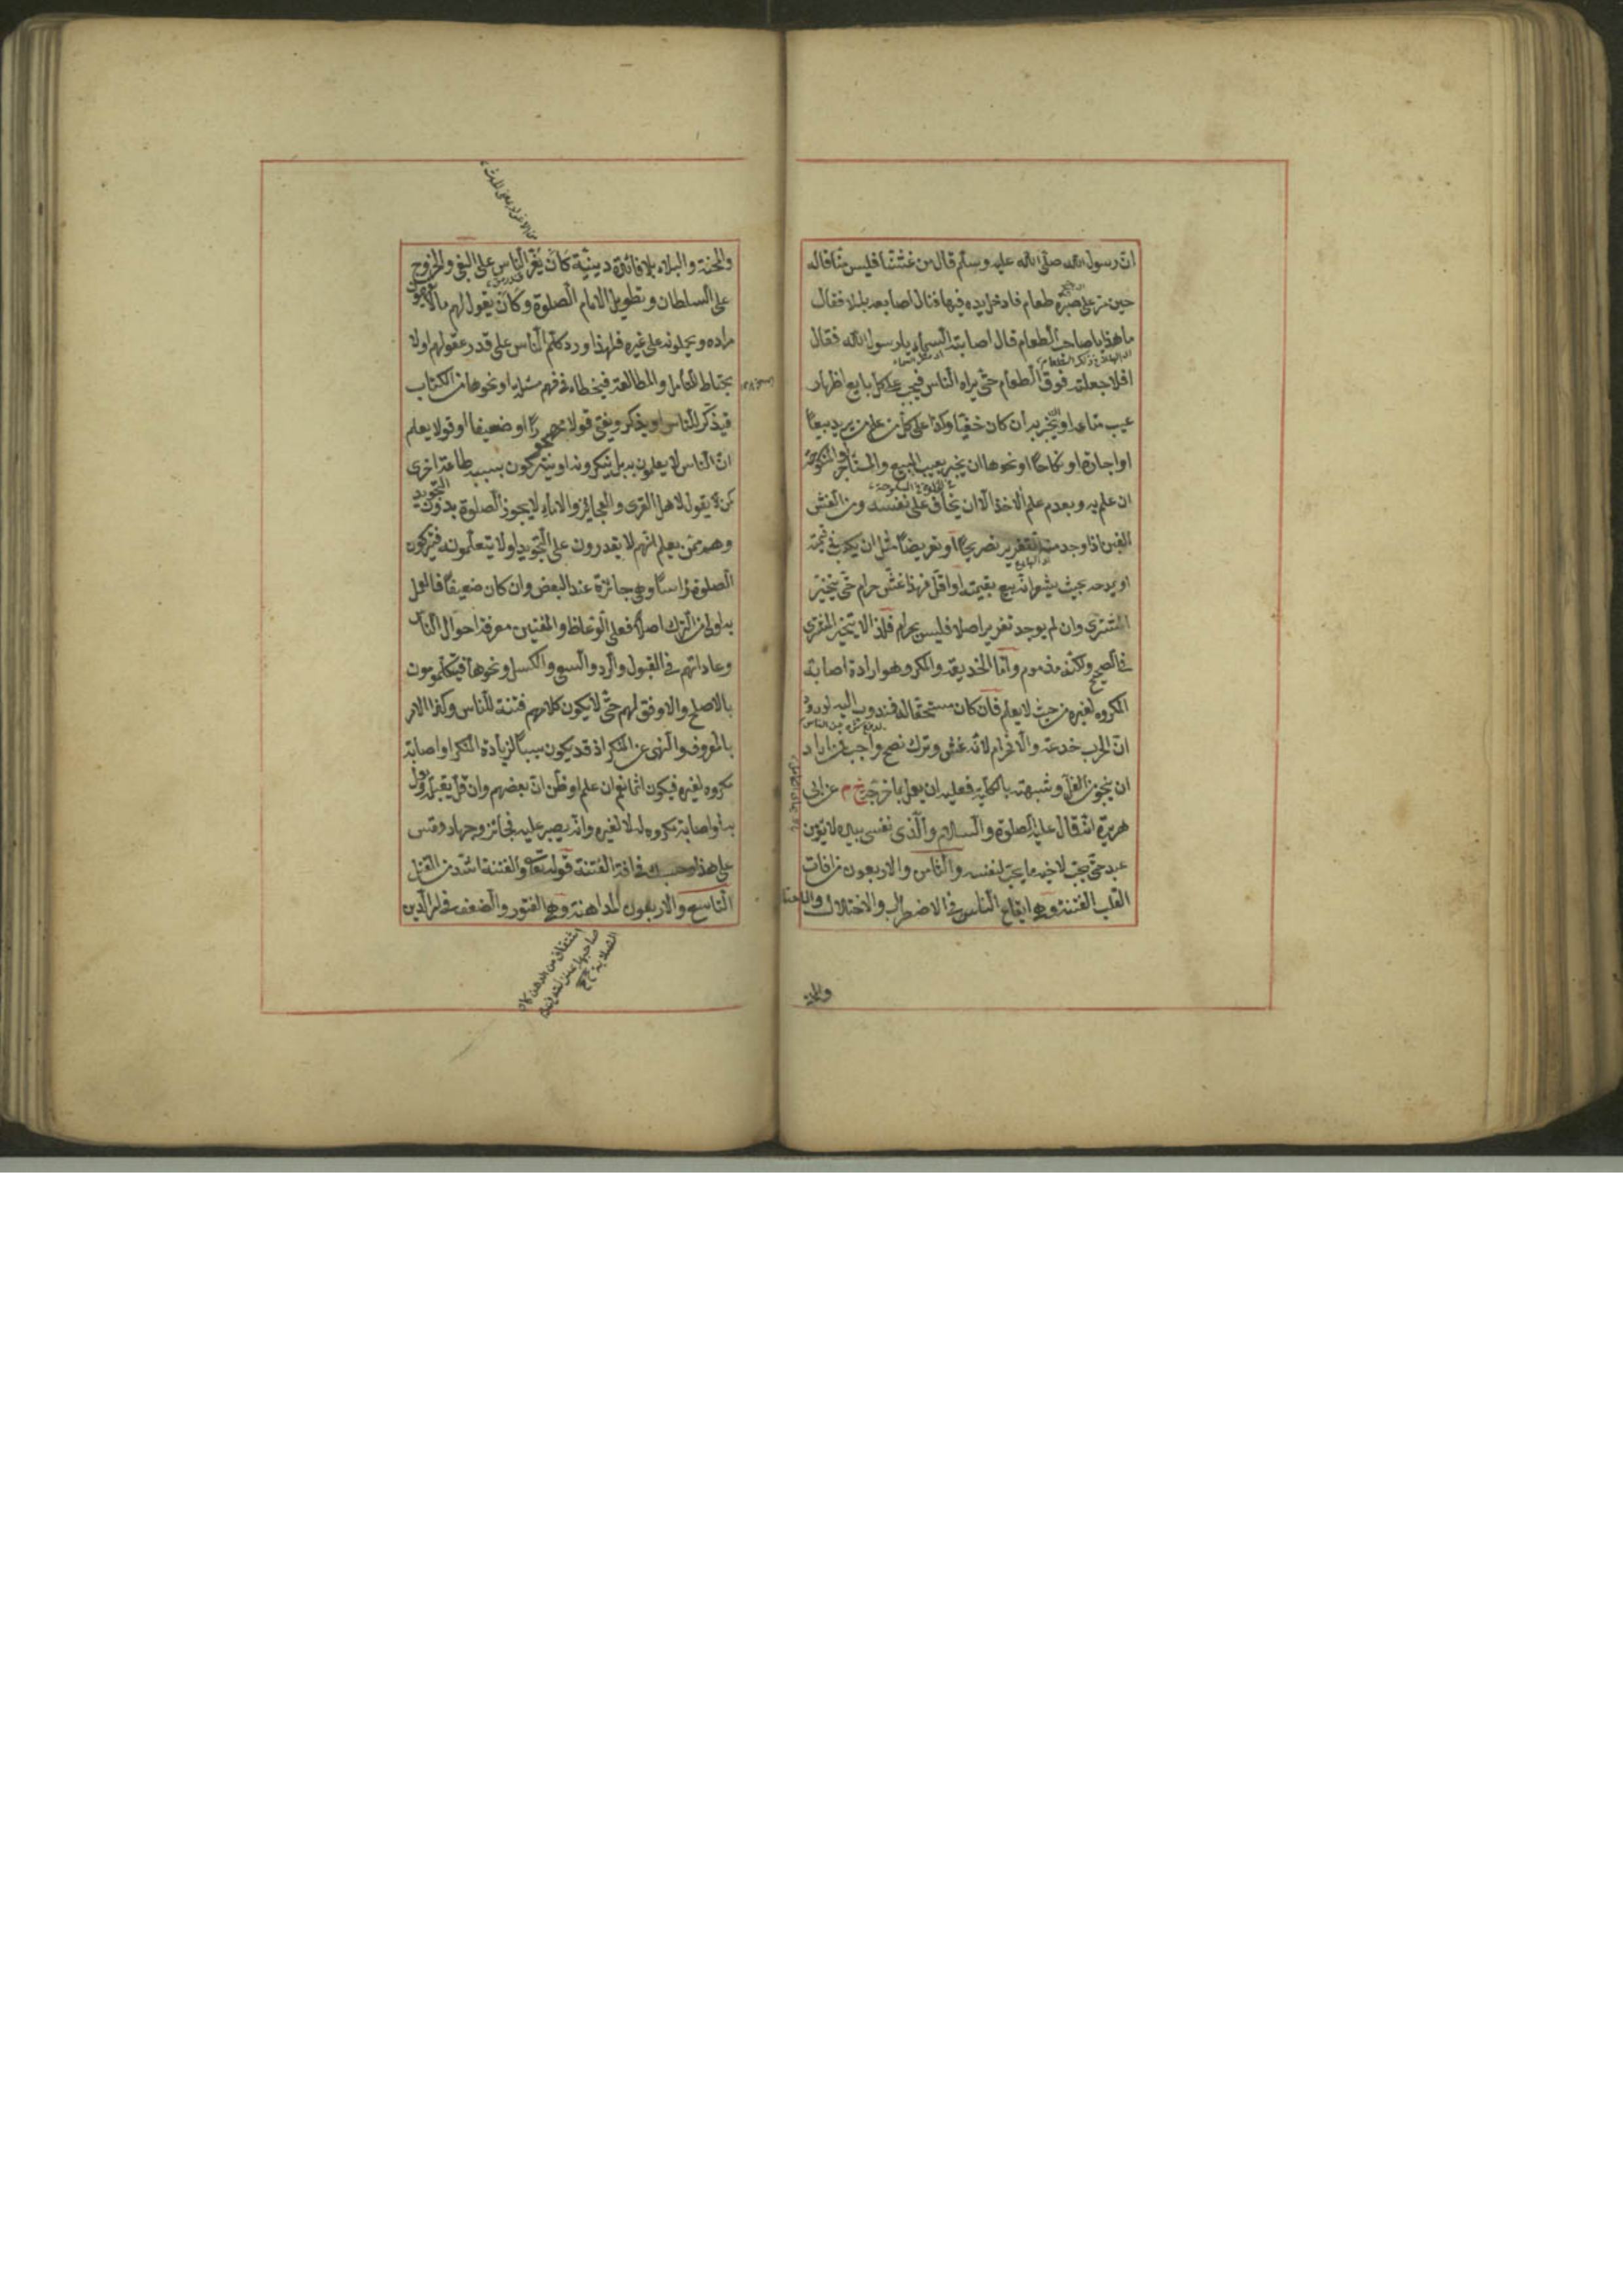 ان رسول الله صلى الله عليه وسلم قال من غشنا فليس منا قاله
حين مر على صبرة طعام فادخل يده فيها فنال اصابعه بللا فقال
ما هذا يا صاحب الطعام قال اصابته السماء يا رسول الله فقال
افلا جعلته فوق الطعام حتى يراه الناس فيجب على كل بايع اظهار
عيب متاعه او يخبر به ان كان خفيا وكذا على كل من علم من يريد بيعا
او اجارة او نكاحا او نحوها ان يخبر بعيب المبيع والمستأجر والمنكوحة
ان علم به وبعدم علم الاخذ الا ان يخاف على نفسه ومن الغش
الغبن اذا وجد منه تغرير تصريحا او تعريضا مثل ان يكذب في ثمنه
او يمدحه بحيث يشير انه يبيع بقيمته او اقل فهذا غش حرام حتى يتخير
المشتري وان لم يوجد تغرير اصلا فليس بحرام فلذا لا يتخير المشتري
في الصحيح ولكنه مذموم واما الخديعة والمكر وهو ارادة اصابة
المكروه لغيره من حيث لا يعلم فان كان مستحقا له فمندوب اليه لورود
ان الحرب خدعة والا فحرام لانه غش وترك نصح واجب فمن اراد
ان ينجو من الغل وشبهته بالكلية فعليه ان يعمل بما خرجه خ م عن ابي
هريرة انه قال عليه الصلوة والسلام والذي نفسي بيده لا يؤمن
عبد حتى يحب لاخيه ما يحب لنفسه والثامن والاربعون من افات
القلب الفتنة وهي ايقاع الناس في الاضطراب والاختلال والاختلاف
والمحنة
والمحنة والبلاء بلا فائدة دينية كان يغر الناس على البغي والخروج
على السلطان وتطويل الامام الصلوة وكان يقول لهم ما لا يفهمون
مراده ويحملونه على غيره فلهذا ورد كلم الناس على قدر عقولهم او لا
يحتاط للتأمل والمطالعة فيخطاء في فهم مسئلة او نحوها من الكتاب
فيذكر للناس او يذكر ويفتي قولا مهجورا او ضعيفا او قولا يعلم
ان الناس لا يعملون به بل ينكرونه او يتركون بسببه طاعة اخرى
كمن يقول لاهل القرى والعجايز والاماء لا يجوز الصلوة بدون التجويد
وهم ممن يعلم انهم لا يقدرون على التجويد او لا يتعلمونه فيتركون
الصلوة رأسا وهي جائزة عند البعض وان كان ضعيفا فالعمل
به اولى من الترك اصلا فعلى الوعاظ والمفتين معرفة احوال الناس
وعاداتهم في القبول والرد والسعي والكسل ونحوها فيتكلمون
بالاصلح والاوفق لهم حتى لا يكون كلامهم فتنة للناس وكذا الامر
بالمعروف والنهي عن المنكر اذ قد يكون سببا لزيادة المنكر او اصابة
مكروه لغيره فيكون اثما نعم ان علم او ظن ان بعضهم وان قل يقبل
به او اصابة مكروه له لا لغيره وانه يصبر عليه فجائز وجهاد وقس
على هذا وحسبك في افة الفتنة قوله تعالى والفتنة اشد من القتل
التاسع والاربعون المداهنة وهي الفتور والضعف في امر الدين